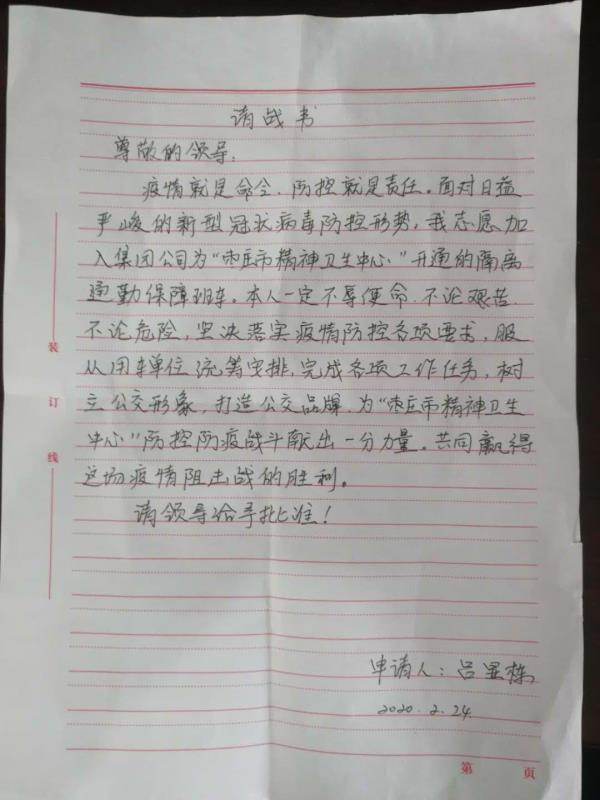 请战书
尊敬的领导：
疫情就是命令、防控就是责任。面对日益
严峻的新型冠状病毒防控形势，我志愿加
入集团公司为“枣庄市精神卫生中心”开通的隔离
通勤保障班车。本人一定不辱使命、不论艰苦、
不论危险，坚决落实疫情防控各项要求，服
从用车单位统筹安排，完成各项工作任务，树
立公交形象，打造公交品牌，为“枣庄市精神卫生
中心”防控防疫战斗献出一分力量。共同赢得
这场疫情阻击战的胜利。
请领导给予批准！
申请人：吕显栋
2020.2.24
装
订
线
第 页